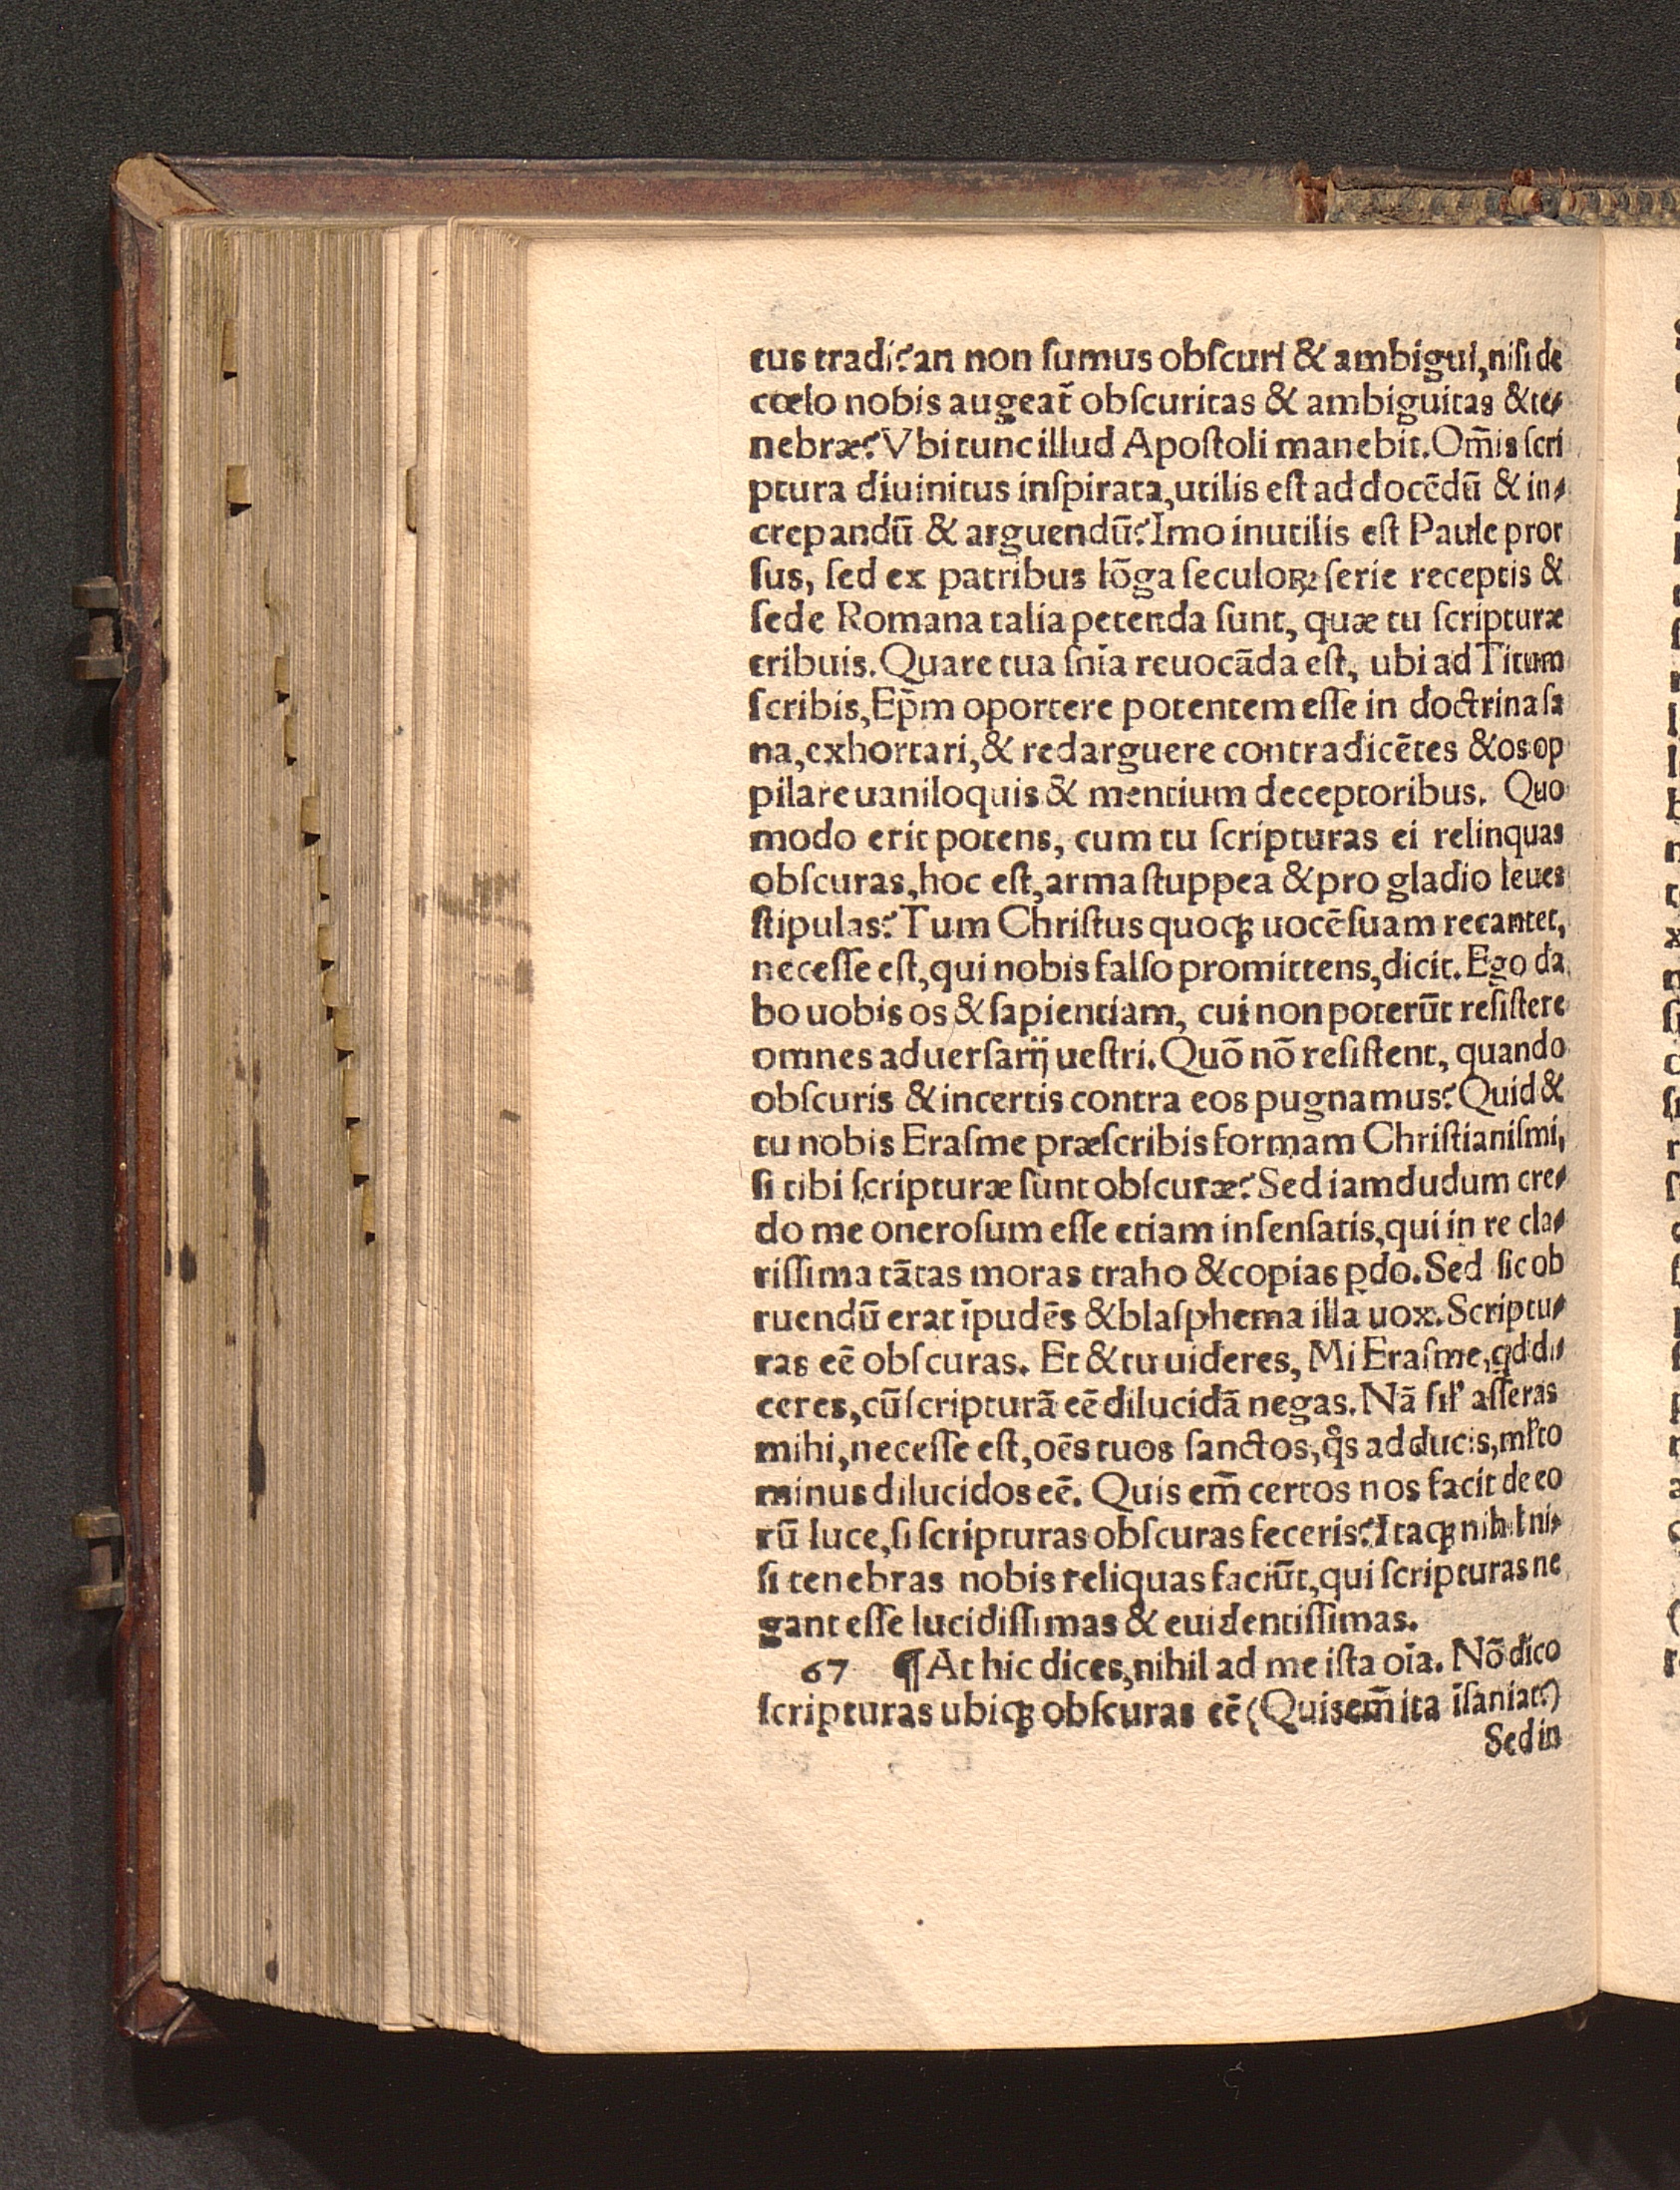 tus tradi? an non ſumus obſcuri & ambigui, niſi de
cœlo nobis augeat̃ obſcuritas & ambiguitas & te⸗
nebræ? Vbi tunc illud Apoſtoli manebit. Om̃is ſcri
ptura diuinitus inſpirata, utilis eſt ad docēdū & in⸗
crepandū & arguendū? Imo inutilis eſt Paule pror
ſus, ſed ex patribus lōga ſeculoꝝ ſerie receptis &
ſede Romana talia petenda ſunt, quæ tu ſcripturæ
tribuis. Quare tua ſnīa reuocāda eſt, ubi ad Titum
ſcribis, Ep̄m oportere potentem eſſe in doctrina ſa
na, exhortari, & redarguere contradicētes & os op
pilare uaniloquis & mentium deceptoribus. Quo
modo erit potens, cum tu ſcripturas ei relinquas
obſcuras, hoc eſt, arma ſtuppea & pro gladio leues
ſtipulas? Tum Chriſtus quoqꝫ uocē ſuam recantet,
neceſſe eſt, qui nobis falſo promittens, dicit. Ego da
bo uobis os & ſapientiam, cui non poterūt reſiſtere
omnes aduerſarij ueſtri. Quō nō reſiſtent, quando
obſcuris & incertis contra eos pugnamus? Quid &
tu nobis Eraſme præſcribis formam Chriſtianiſmi,
ſi tibi ſcripturæ ſunt obſcuræ? Sed iamdudum cre⸗
do me oneroſum eſſe etiam inſenſatis, qui in re cla⸗
riſſima tātas moras traho & copias ꝑdo. Sed ſic ob
ruendū erat īpudēs & blaſphema illa uox. Scriptu⸗
ras eē obſcuras. Et & tu uideres, Mi Eraſme, qd di⸗
ceres, cū ſcripturā eē dilucidā negas. Nā ſiľ aſſeras
mihi, neceſſe eſt, oēs tuos ſanctos, qͦs adducis, mľto
minus dilucidos eē. Quis em̃ certos nos facit de eo
rū luce, ſi ſcripturas obſcuras feceris? Itaqꝫ nihil ni⸗
ſi tenebras nobis reliquas faciūt, qui ſcripturas ne
gant eſſe lucidiſſimas & euidentiſſimas.
67 ¶ At hic dices, nihil ad me iſta oīa. Nō dico
ſcripturas ubiqꝫ obſcuras eē (Quis em̃ ita īſaniat?)
Sed in